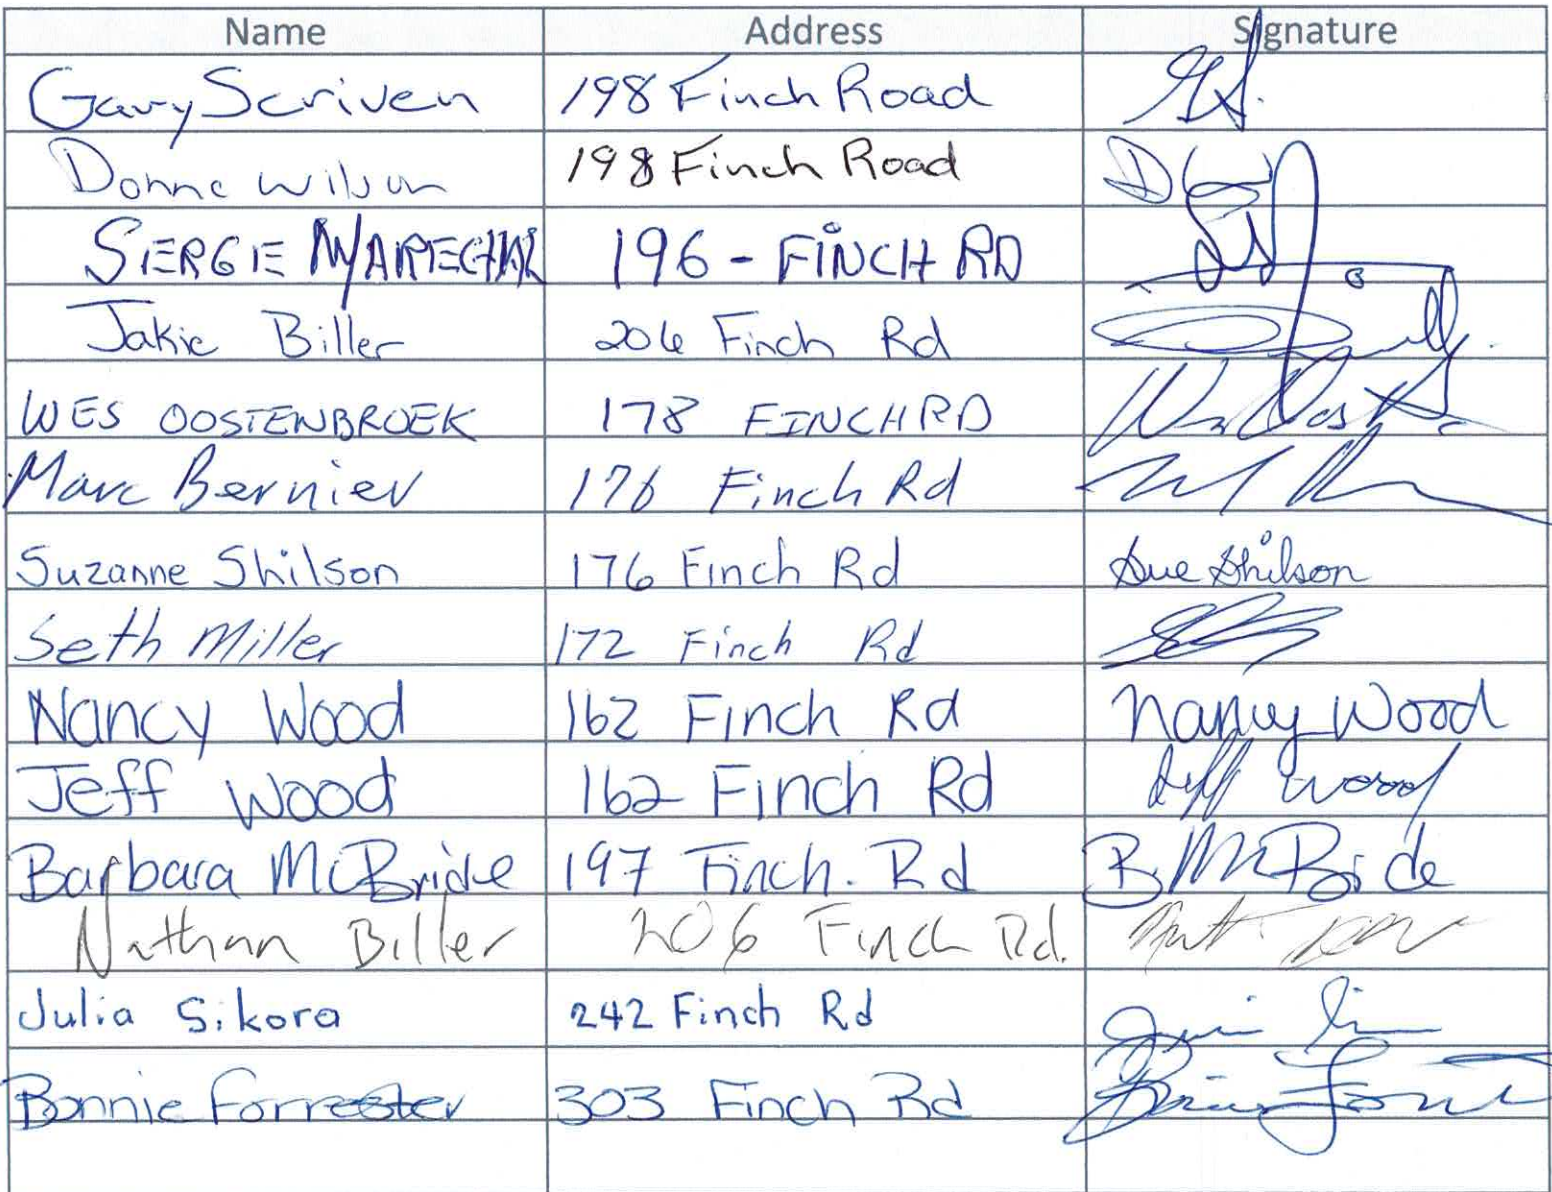 Name Address Signature
Gary Scriven 198 Finch Road GS.
Donna Wilson 198 Finch Road
SERGE MARECHAL 196 - FINCH RD
Jakie Biller 206 Finch Rd
WES OOSTENBROEK 178 FINCH RD
Marc Bernier 176 Finch Rd
Suzanne Shilson 176 Finch Rd Sue Shilson
Seth Miller 172 Finch Rd
Nancy Wood 162 Finch Rd Nancy Wood
Jeff Wood 162 Finch Rd Jeff Wood
Barbara McBride 197 Finch. Rd B. McBride
Nathan Biller 206 Finch Rd.
Julia Sikora 242 Finch Rd
Bonnie Forrester 303 Finch Rd